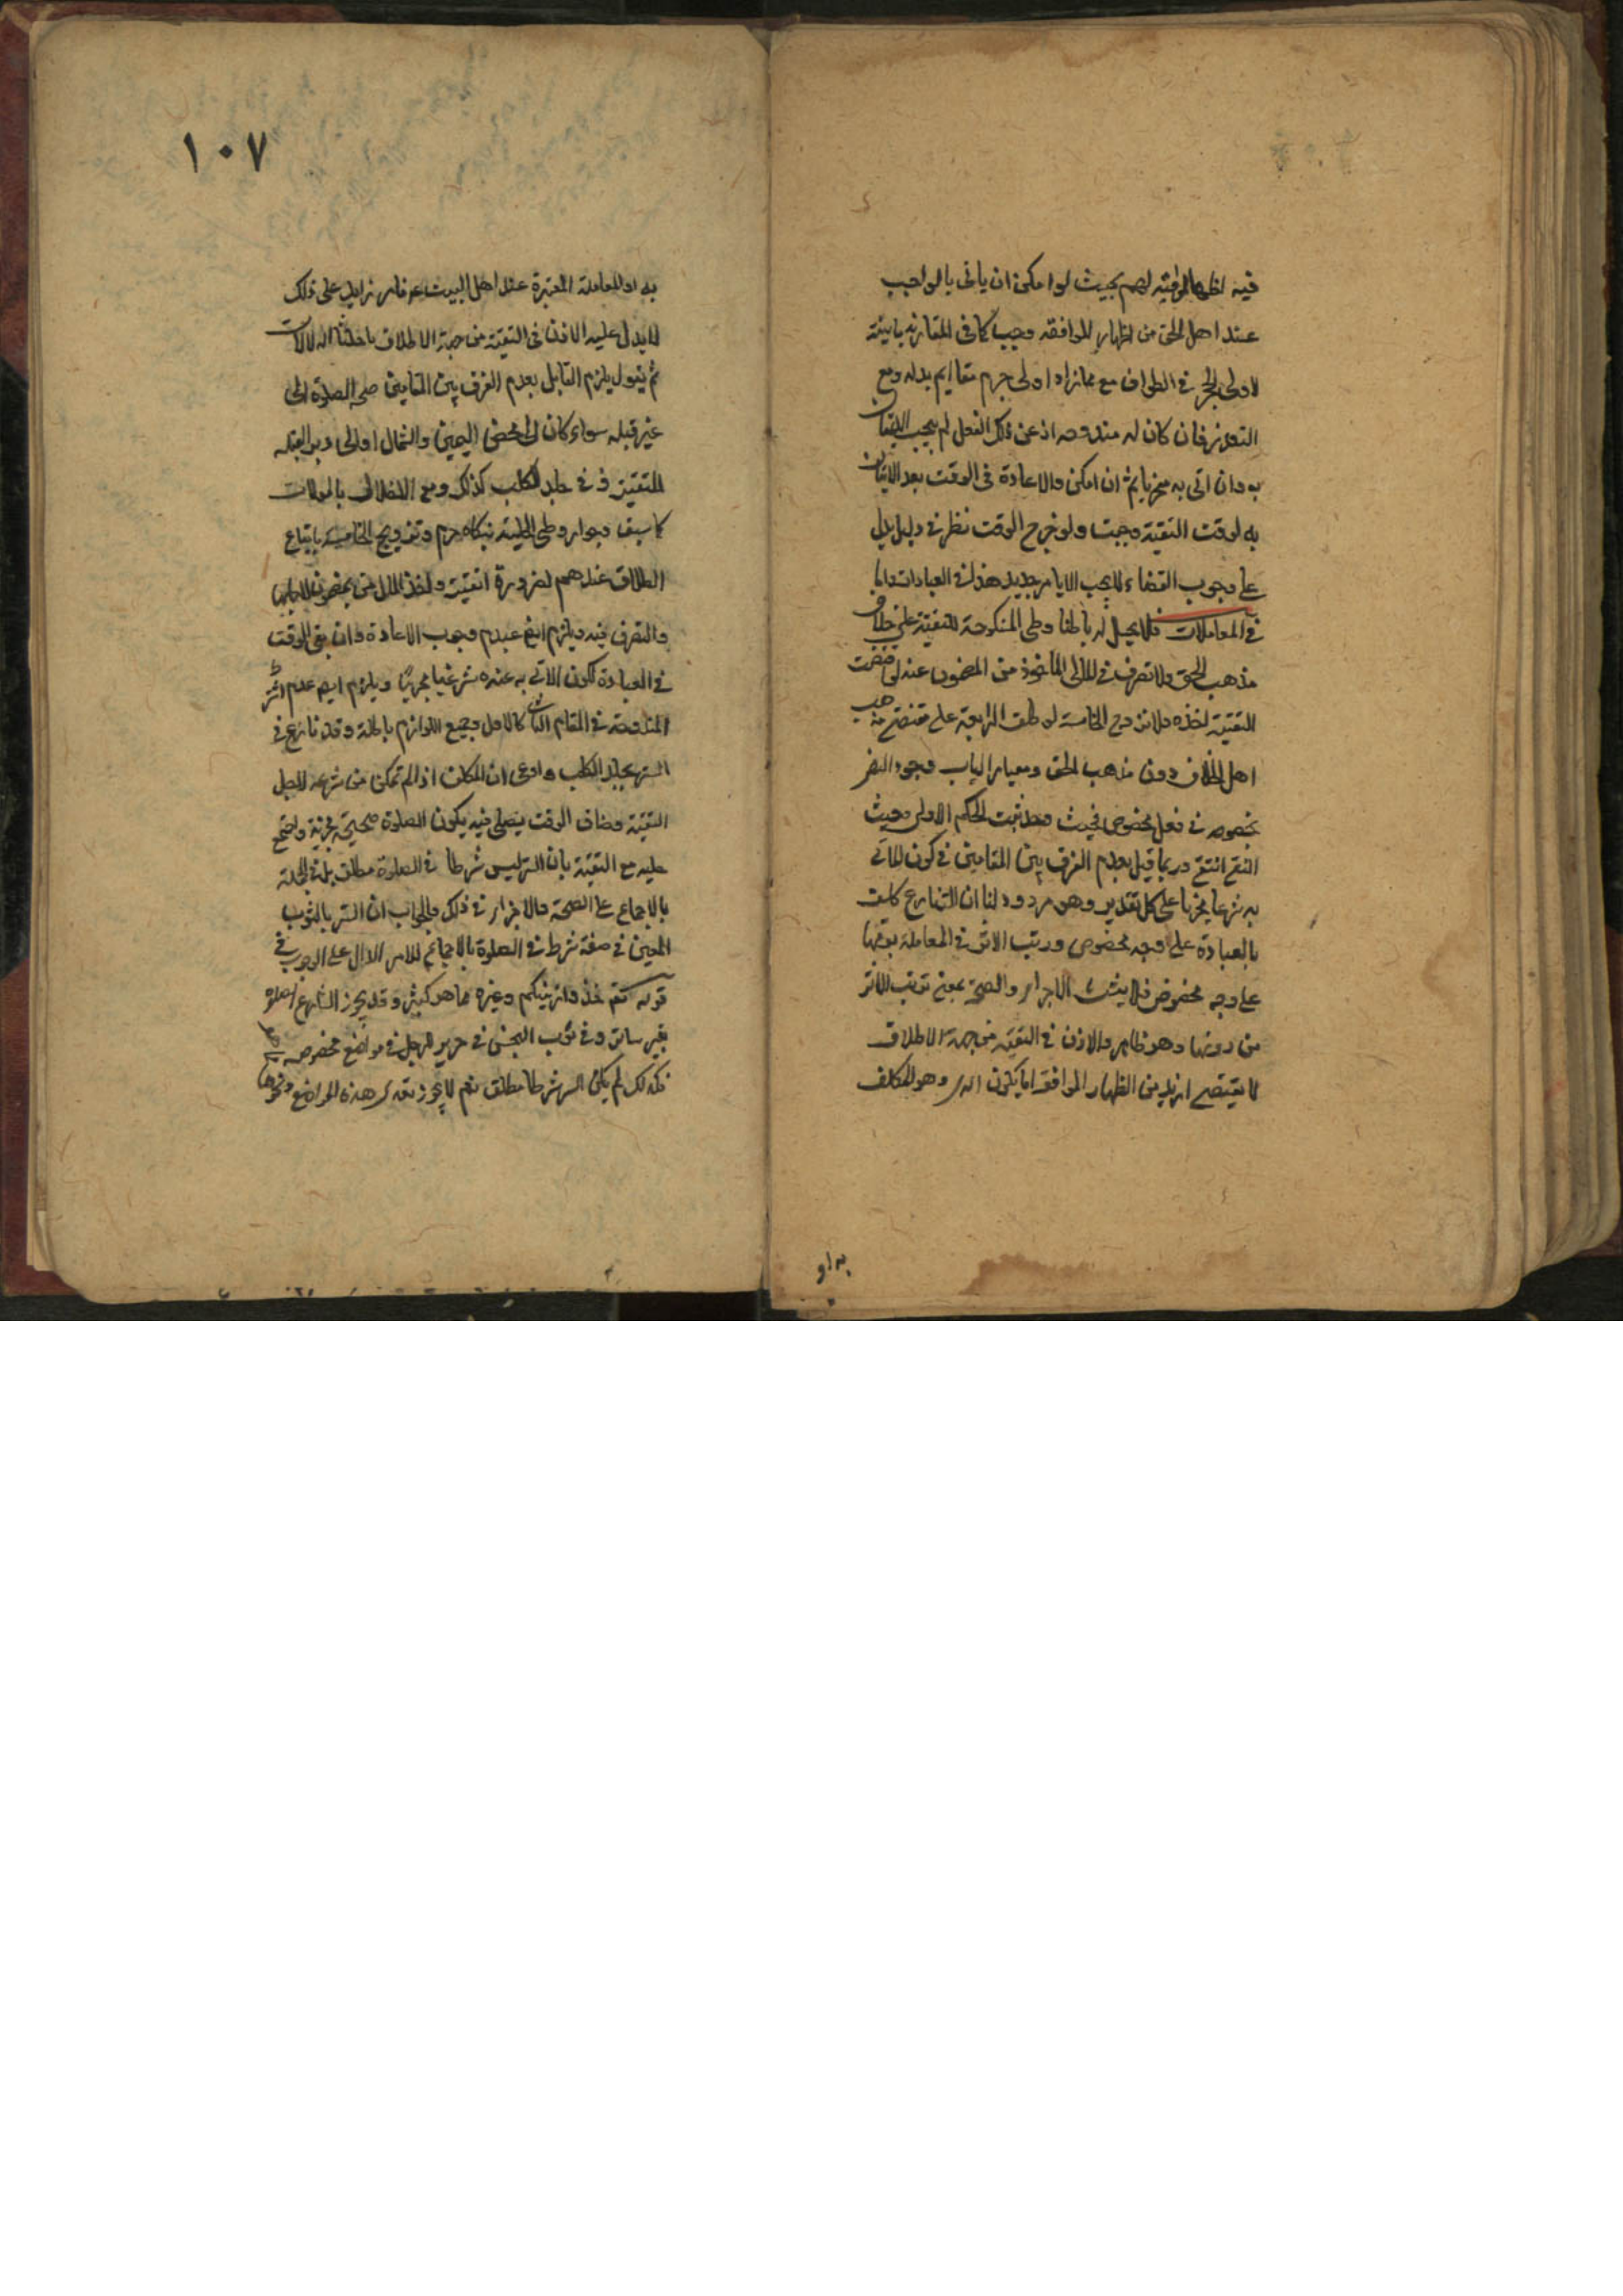 فيه اظهار الموافقه لهم بحيث لو امكن ان ياتى بالواجب
عند اهل الحق من اظهار الموافقه وجب كما فى المقارنه بالنية
لاول الحجر فى الطواف مع محاذاه اولى جرم مقاديم بدنه ومع
التعذر فان كان له مندوحه اذ عن ذلك الفعل لم يجب الاتيان
به وان اتى به مخربا ثم ان امكن والاعادة فى الوقت بعد الاتيان
به لوقت التقيّة وجبت ولو خرج الوقت نظر فى دليل يدل
على وجوب القضاء لا يجب الا بامر جديد هذا فى العبادات واما
فى المعاملات فلا يحل له باطنا وطى المنكوحة للتقيّة على خلاف
مذهب الحق ولا تصرف فى المال الماخوذ من المضمون عنه لو اقتضت
التقيّة اخذه ولا تزوج الخامسة لو طلق الرابعة على مقتضى مذهب
اهل الخلاف دون مذهب الحق ومعيار الباب وجود النص
بخصوصه فى فعل مخصوص فحيث وجد ثبت الحكم الاول وحيث
انتفى انتفى وربما قيل بعدم الفرق بين المقامين فى كون المأتى
به شرعا مجزيا على كل تقدير وهو مردود لنا ان الشارع كلف
بالعبادة على وجه مخصوص ورتب الاثر فى المعاملة بوقوعها
على وجه مخصوص فلا يثبت الاجزاء والصحة بمعنى ترتب الاثر
من دونها وهو ظاهر والاذن فى التقيّة من جهة الاطلاق
لا يقتضى ازيد من اظهار الموافقة اما يكون المر وهو المكلف
به او
١٠٧
به او المعاملة المعتبرة عند اهل البيت ع فامر زايد على ذلك
لا يدل عليه الاذن فى التقيّة من جهة الاطلاق باحدى الدلالات
ثم نقول يلزم القايل بعدم الفرق بين المقامين صحه الصلوة الى
غير قبله سواء كان الى محض اليمين والشمال او الى دبر القبله
للتقيّة وفى جلد الكلب كذلك ومع الاخلال بالموالات
كما سبق وجواز وطى الحليله بنكاحهم وتزويج الخامسة باتباع
الطلاق عندهم لضرورة التقيّة واخذ المال من المضمون
والتصرف فيه ويلتزم ايضا عدم وجوب الاعادة وان بقى الوقت
فى العبادة لكون الآتى به عنده شرعيا مجزيا ويلزم ايضا عدم
المندوحة فى المقام الثانى كالاول وجميع اللوازم باطلة وقد نازع فى
الستر بجلد الكلب وادعى ان المكلف اذا لم تمكن من نزعه لاجل
التقيّة وضاق الوقت يصلى فيه يكون الصلوة صحيحة مجزية واحتج
عليه مع التقيّة بان الستر ليس شرطا فى الصلوة مطلقا بل فى الجملة
بالاجماع على الصحة والاجزاء فى ذلك والجواب ان الستر بالثوب
المعين فى صفة شرط فى الصلوة بالاجماع للامر الدال على الوجوب فى
قوله تعم خذوا زينتكم وغيره مما هو كثير وقد يجوز الشارع الصلوة
بغير ساتر وفى ثوب النجس فى حرير للرجل فى مواضع مخصوصه
فلذلك لم يكن الستر شرطا مطلقا نعم لا يجوز تعدى هذه المواضع ونحوها